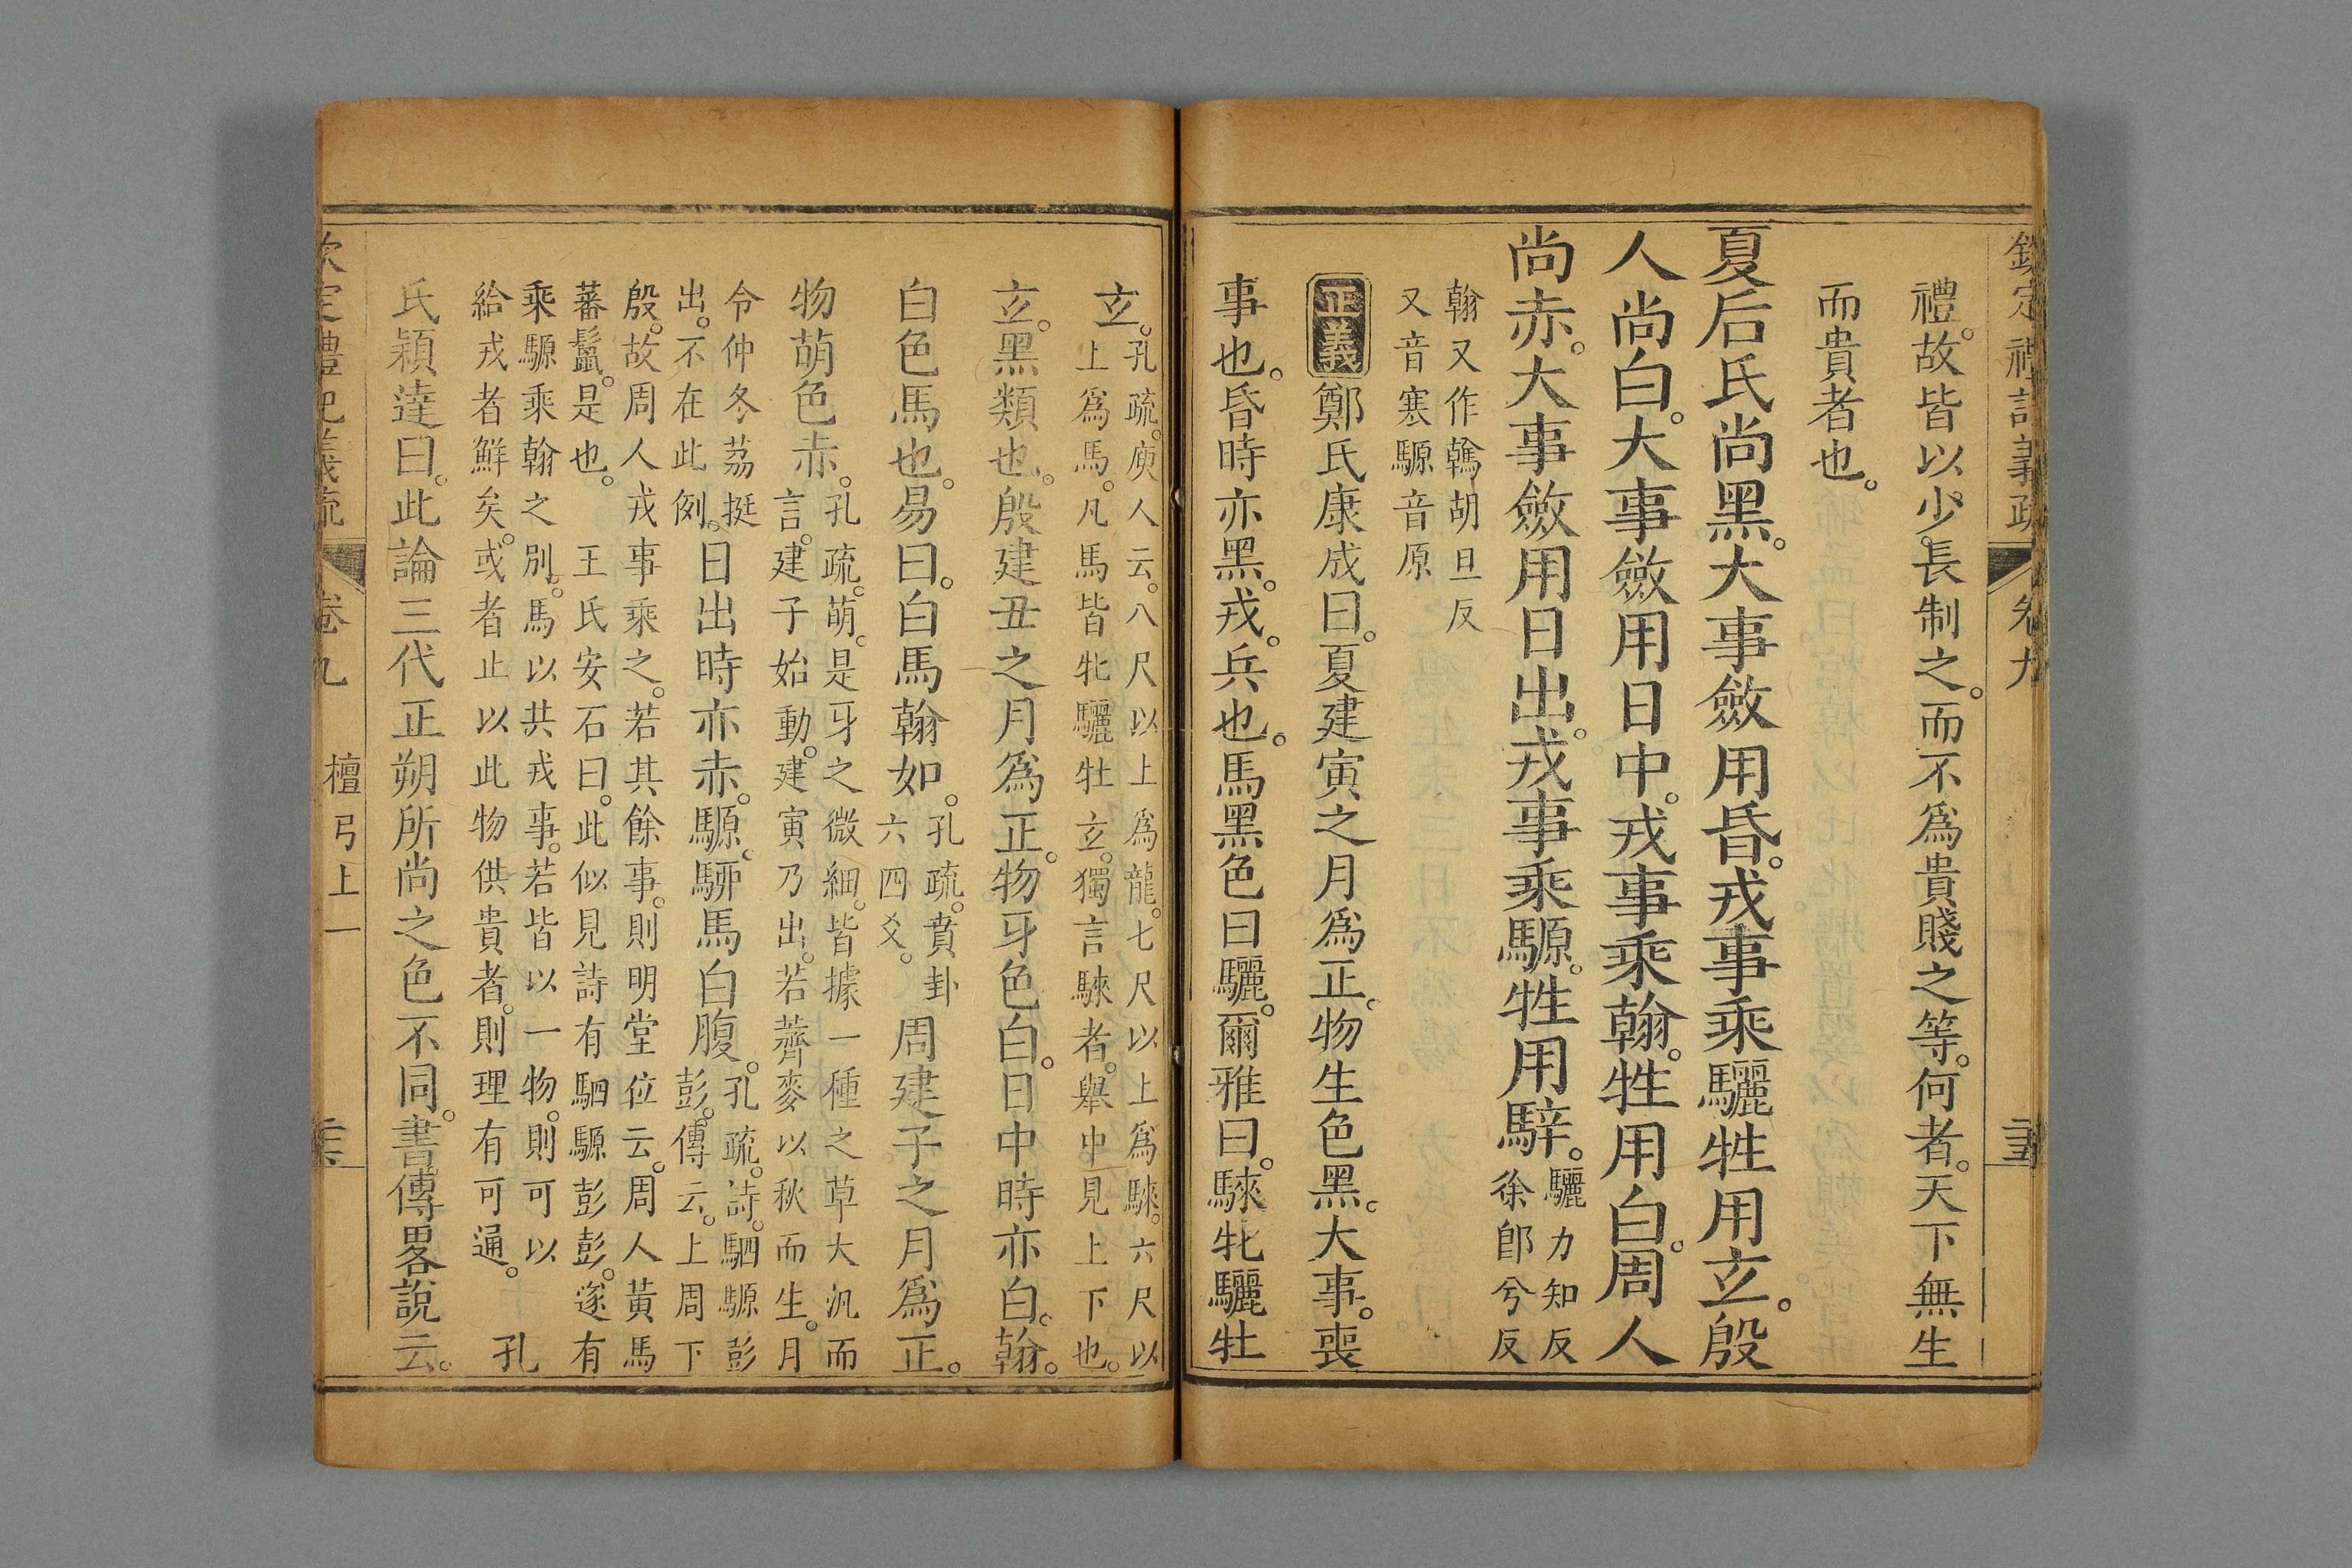 欽定禮記義疏 卷九
禮。故皆以少長制之。而不爲貴賤之等。何者。天下無生
而貴者也。
夏后氏尚黑。大事斂用昏。戎事乘驪牲用玄。殷
人尚白。大事斂用日中。戎事乘翰。牲用白。周人
尚赤。大事斂用日出。戎事乘騵。牲用騂。驪力知反
徐郎兮反
翰又作鶾胡旦反
又音寒騵音原
正義鄭氏康成曰。夏建寅之月爲正。物生色黑。大事。喪
事也。昏時亦黑。戎。兵也。馬黑色曰驪。爾雅曰。騋牝驪牡
玄。孔疏。廋人云。八尺以上爲龍。七尺以上爲騋。六尺以
上爲馬。凡馬皆牝驪牡玄。獨言騋者。舉中見上下也。
玄。黑類也。殷建丑之月爲正。物牙色白。日中時亦白。翰。
白色馬也。易曰。白馬翰如。孔疏。賁卦
六四爻。周建子之月爲正。
物萌色赤。孔疏。萌。是牙之微細。皆據一種之草大汎而
言。建子始動。建寅乃出。若薺麥以秋而生。月
令仲冬荔挺
出。不在此例。日出時亦赤。騵。駵馬白腹。孔疏。詩。駟騵彭
彭。傳云。上周下
殷。故周人戎事乘之。若其餘事。則明堂位云。周人黃馬
蕃鬣。是也。 王氏安石曰。此似見詩有駟騵彭彭。遂有
乘騵乘翰之別。馬以共戎事。若皆以一物。則可以
給戎者鮮矣。或者止以此物供貴者。則理有可通。 孔
氏穎達曰。此論三代正朔所尚之色不同。書傳畧說云。
欽定禮記義疏 卷九 檀弓上一